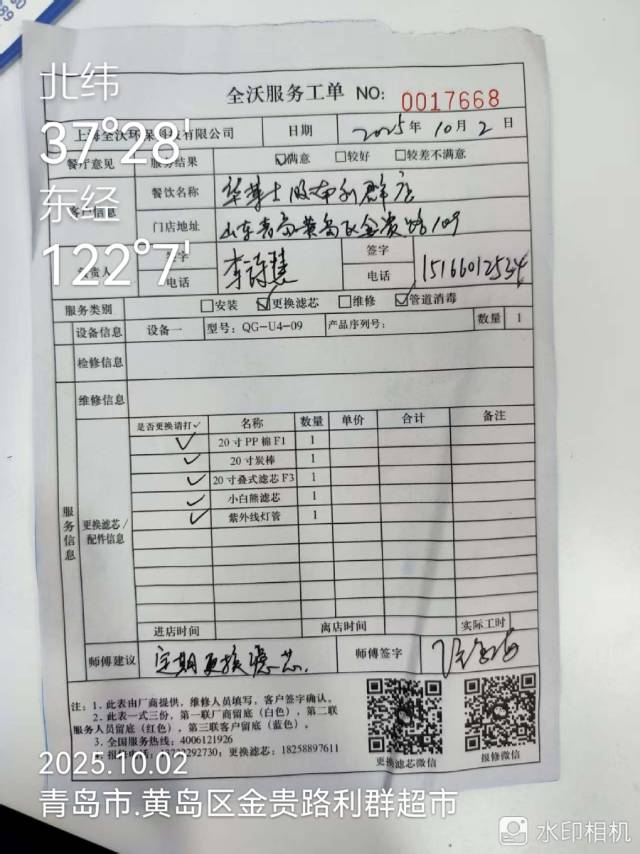 全沃服务工单 NO: 0017668
上海全沃环保科技有限公司 日期 2025年10月2日
餐厅意见 服务结果 ☑满意 □较好 □较差不满意
客户信息 餐饮名称 华莱士胶南利群店
门店地址 山东青岛黄岛区金贵路109
负责人 签字 李诗慧 签字
电话 电话 15166012534
服务类别 □安装 ☑更换滤芯 □维修 ☑管道消毒
设备信息 设备一 型号: QG-U4-09 产品序列号: 数量 1
检修信息
维修信息
服务信息
更换滤芯/配件信息
是否更换请打✓ 名称 数量 单价 合计 备注
✓ 20寸PP棉F1 1
✓ 20寸炭棒 1
✓ 20寸叠式滤芯F3 1
✓ 小白熊滤芯 1
✓ 紫外线灯管 1
进店时间 离店时间 实际工时
师傅建议 定期更换滤芯. 师傅签字
注: 1. 此表由厂商提供, 维修人员填写, 客户签字确认。
2. 此表一式三份, 第一联厂商留底(白色), 第二联
服务人员留底(红色), 第三联客户留底(蓝色)。
3. 全国服务热线: 4006121926
报修电话: 292730; 更换滤芯: 18258897611
更换滤芯微信 报修微信
北纬
37°28'
东经
122°7'
2025.10.02
青岛市.黄岛区金贵路利群超市
水印相机